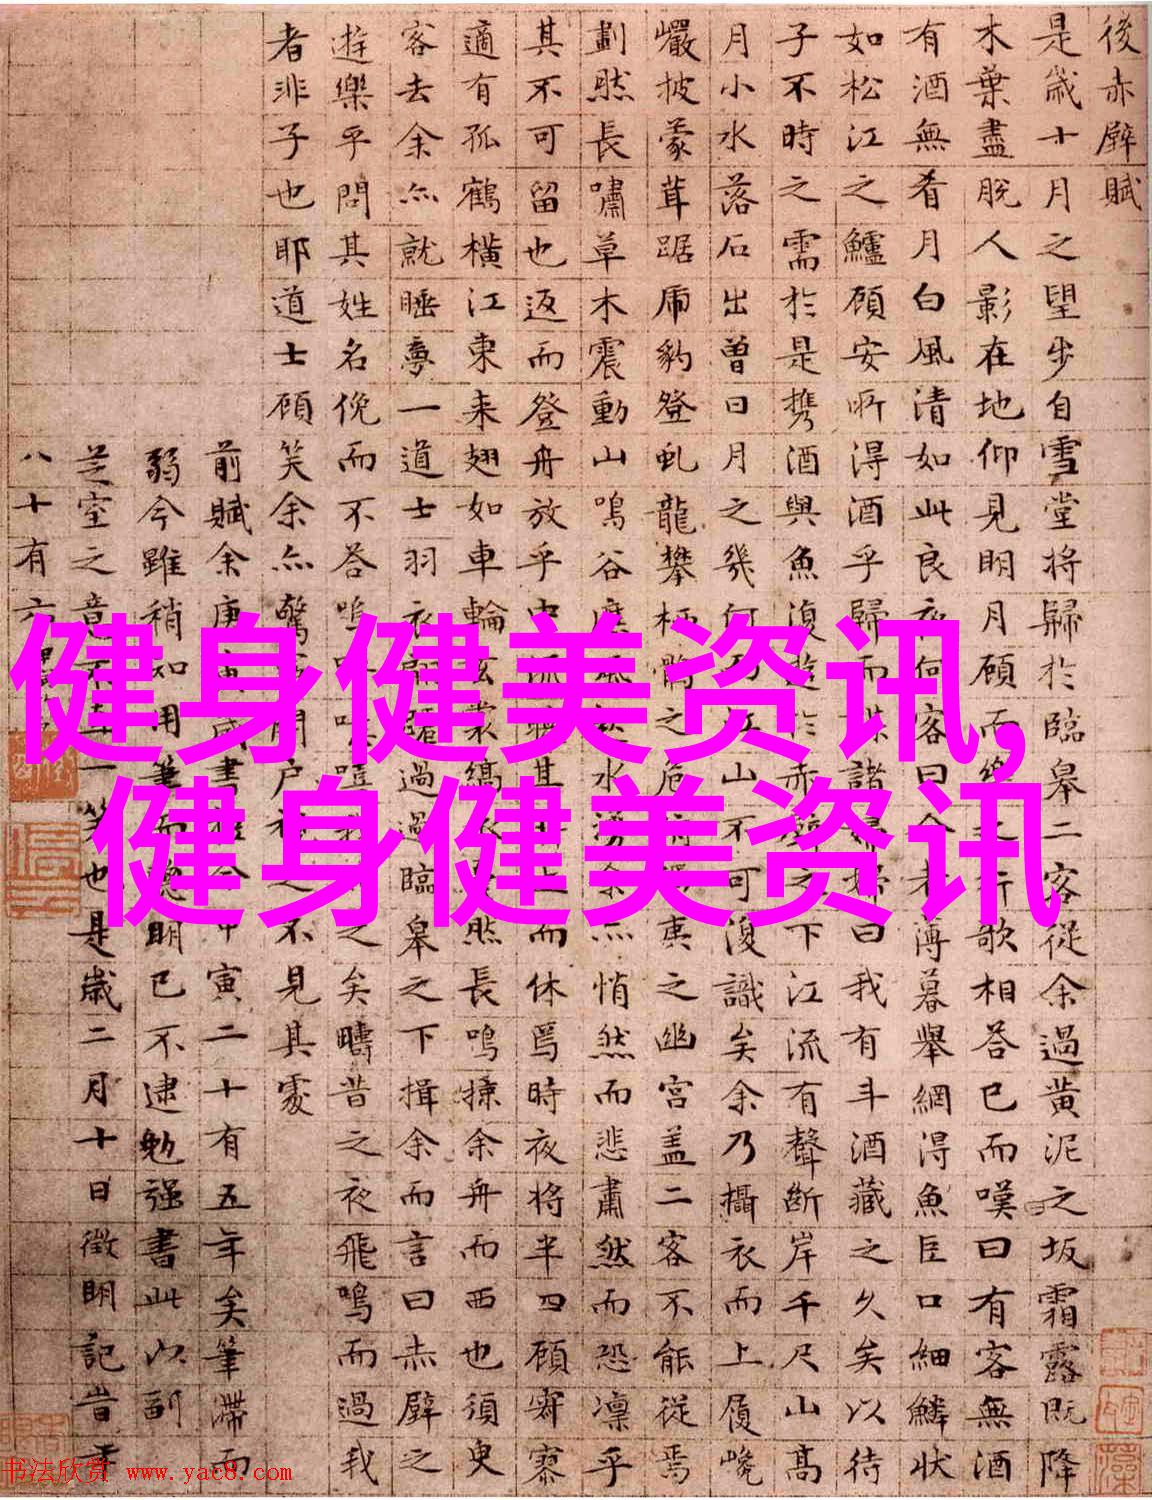 後赤壁賦
是歳十月之望步自雪堂將歸於臨皋二客從余過黃泥之坂霜露既降
木葉盡脫人影在地仰見明月顧而樂之行歌相答已而嘆曰有客無酒
有酒無肴月白風清如此良夜何客曰今者薄暮舉網得魚巨口細鱗狀
如松江之鱸顧安所得酒乎歸而謀諸婦婦曰我有斗酒藏之久矣以待
子不時之需於是攜酒與魚復遊於赤壁之下江流有聲斷岸千尺山高
月小水落石出曾日月之幾何江山不可復識矣余乃攝衣而上履巉
巖披蒙茸踞虎豹登虬龍攀栖鶻之危巢俯馮夷之幽宮盖二客不能從焉
劃然長嘯草木震動山鳴谷應風起水湧余亦悄然而悲肅然而恐凜乎
其不可留也返而登舟放乎中流聽其所止而休焉時夜將半四顧寂寥
適有孤鶴橫江東来翅如車輪玄裳縞衣戛然長鳴掠余舟而西也須臾
客去余亦就睡夢一道士羽衣翩躚過臨皋之下揖余而言曰赤壁之
遊樂乎問其姓名俛而不答嗚呼噫嘻我知之矣疇昔之夜飛鳴而過我
者非子也耶道士顧笑余亦驚寤開戶視之不見其處
前賦余庚戌書今甲寅二十有五年矣筆滯而
弱今雖稍知用筆而聰明已不逮勉强書此以副
芝室之意不直一笑也是歳二月十日徵明記時年
八十有六
健身健美资讯,
健身健美资讯
书法欣赏 www.yac8.com